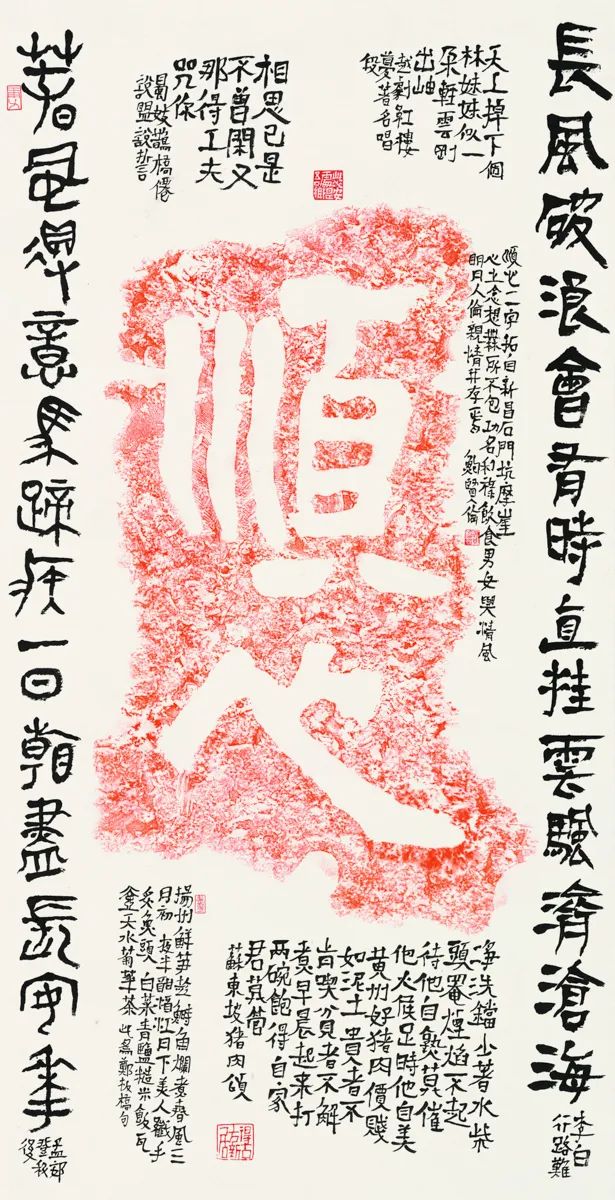 長風破浪會有時直挂雲颿濟滄海
李白
行路難
天上掉下個
林妹妹似一
朵輕雲剛
出岫
越劇紅樓
夢著名唱
段
相思已是
不曾閑又
那得工夫
咒你
蜀妓鵲橋僊
說盟說誓言
順心二字拓自新昌石門坑摩崖
心上念想無所不包功名利祿飲食男女與情風
明月人倫親情并存焉 鮑賢倫
順心
淨洗鐺少著水柴
頭罨煙焰不起
待他自熟莫催
他火候足時他自美
黃州好豬肉價賤
如泥土貴者不
肯喫貧者不解
煮早晨起來打
兩碗飽得自家
君莫管
蘇東坡猪肉頌
揚州鮮笋趁鰣魚爛煮春風三
月初 夜半酣酒江月下美人纖手
炙魚頭 白菜青鹽糙米飯瓦
壺天水菊華茶 此為鄭板橋句
春風得意馬蹄疾一日看盡長安華
孟郊
登科
後